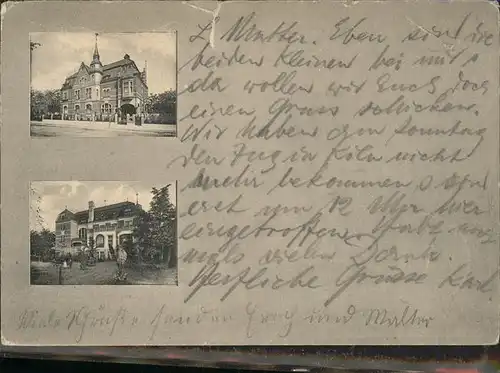 L. Mutter. Eben sind die
beiden Kleinen bei mir &
da wollen wir Euch doch
einen Gruss schicken.
Wir haben am Sonntag
den Zug in Köln nicht
mehr bekommen & sind
erst um 12 Uhr hier
eingetroffen. Habt noch-
mals vielen Dank.
Herzliche Grüsse Karl
Viele Grüße senden Erny und Walter